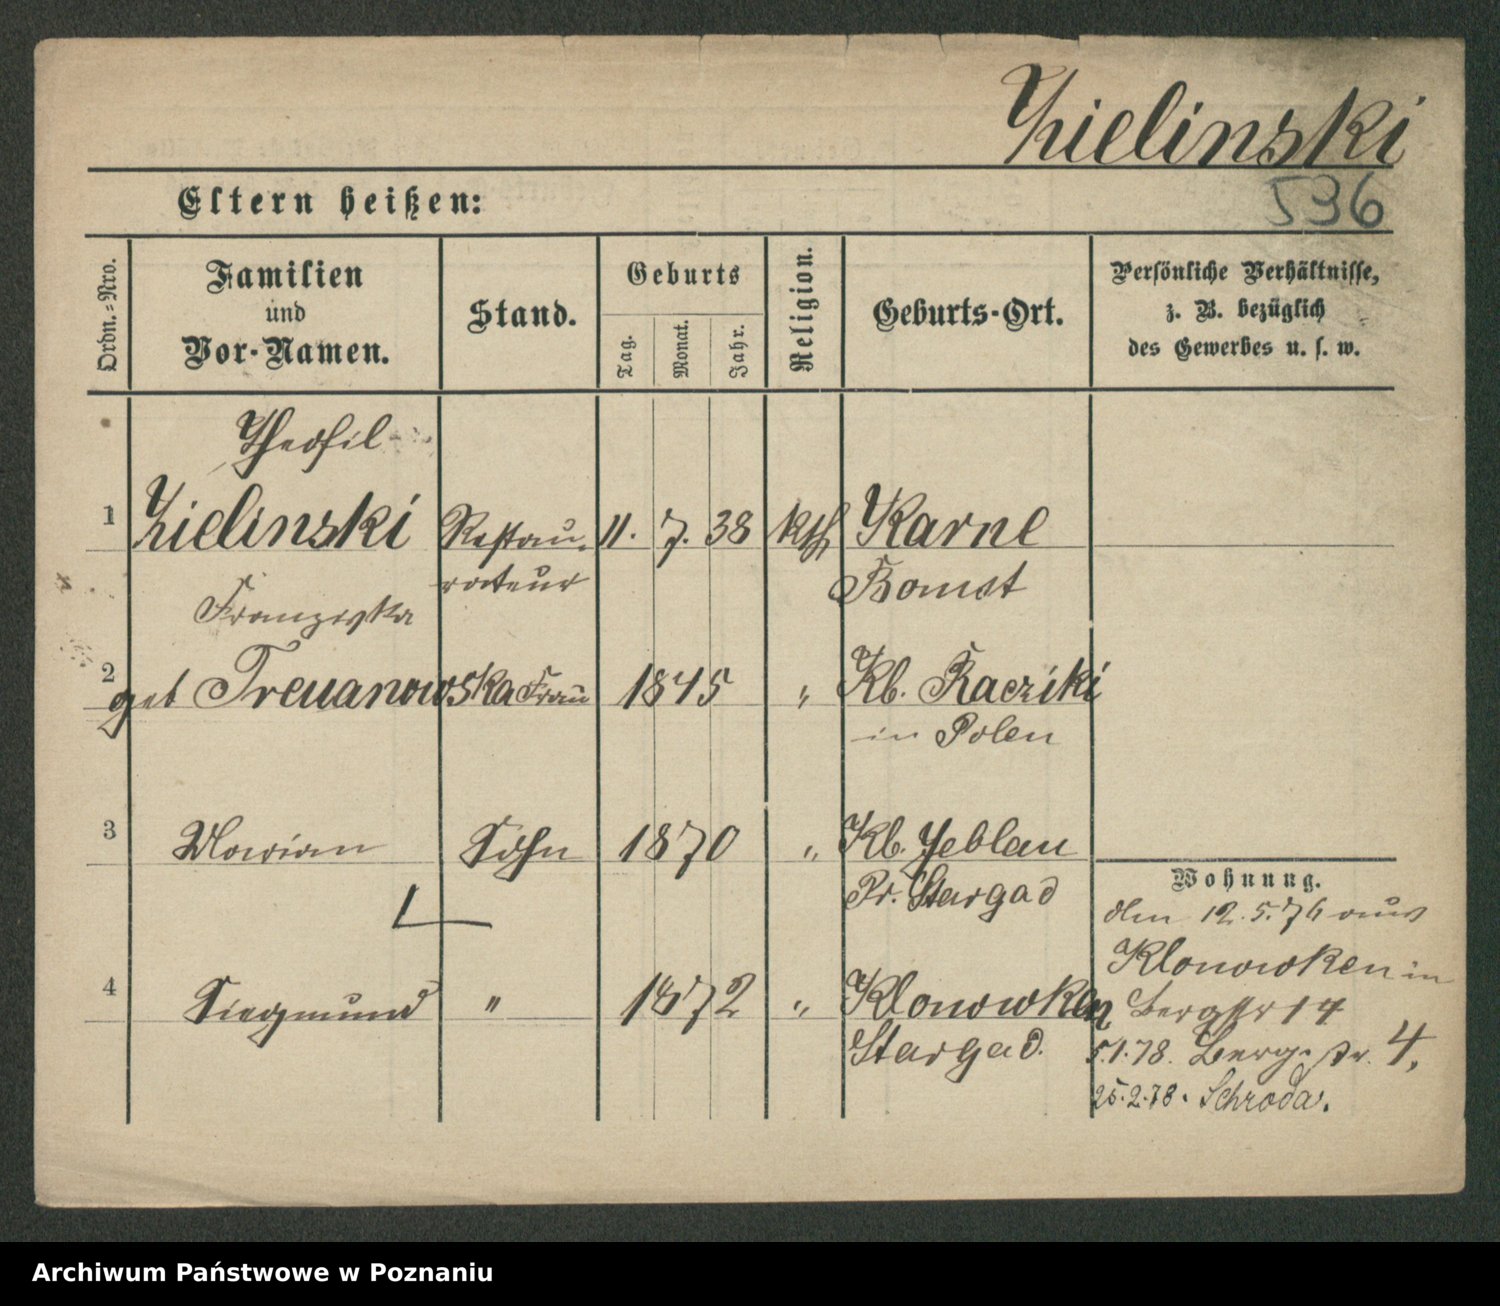 Zielinski
Eltern heißen:
536
Ordn.-Nro.
Familien
und
Vor-Namen.
Stand.
Geburts
Tag.
Monat.
Jahr.
Religion.
Geburts-Ort.
Persönliche Verhältnisse,
z. B. bezüglich
des Gewerbes u. s. w.
Theofil
1 Zielinski Restau- 11. 7. 38 kth Karne
rateur Bomst
Franziska
2 geb Trevanowska Frau 1845 " Kb. Racziki
in Polen
3 Marian Sohn 1870 " Kb. Jeblau
Pr. Stargad
Wohnung.
den 12.5.76 aus
Klonowken in
4 Siegmund " 1872 " Klonowken Bergstr 14
Stargad. 5.1.78. Berg-str. 4.
25.2.78. Schroda.
Archiwum Państwowe w Poznaniu